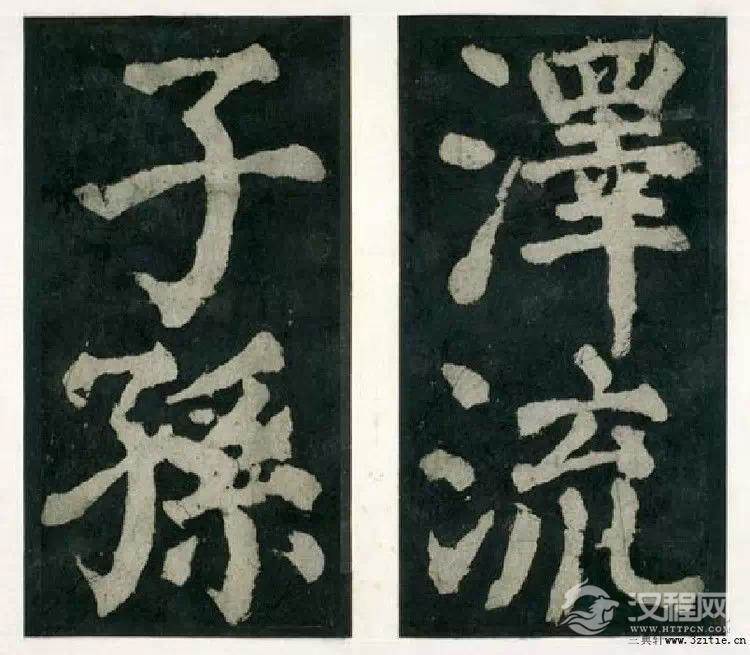 澤流
子孫
汉程网
WWW.HTTPCN.COM
三典轩www.3zitie.cn